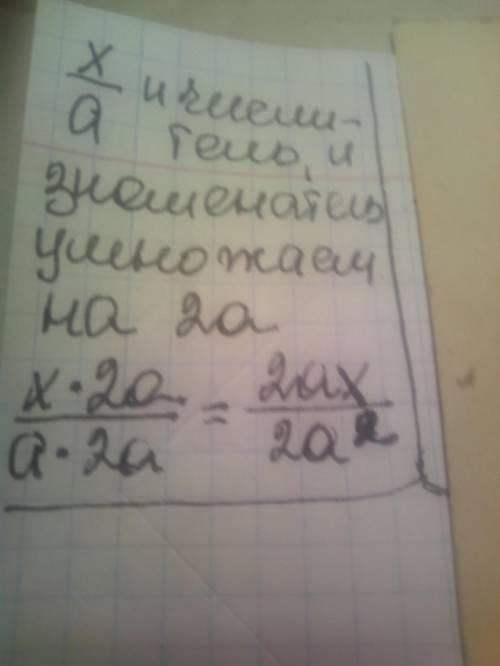 x/a и числи-
тель, и
знаменатель
умножаем
на 2a
x·2a/a·2a = 2ax/2a²